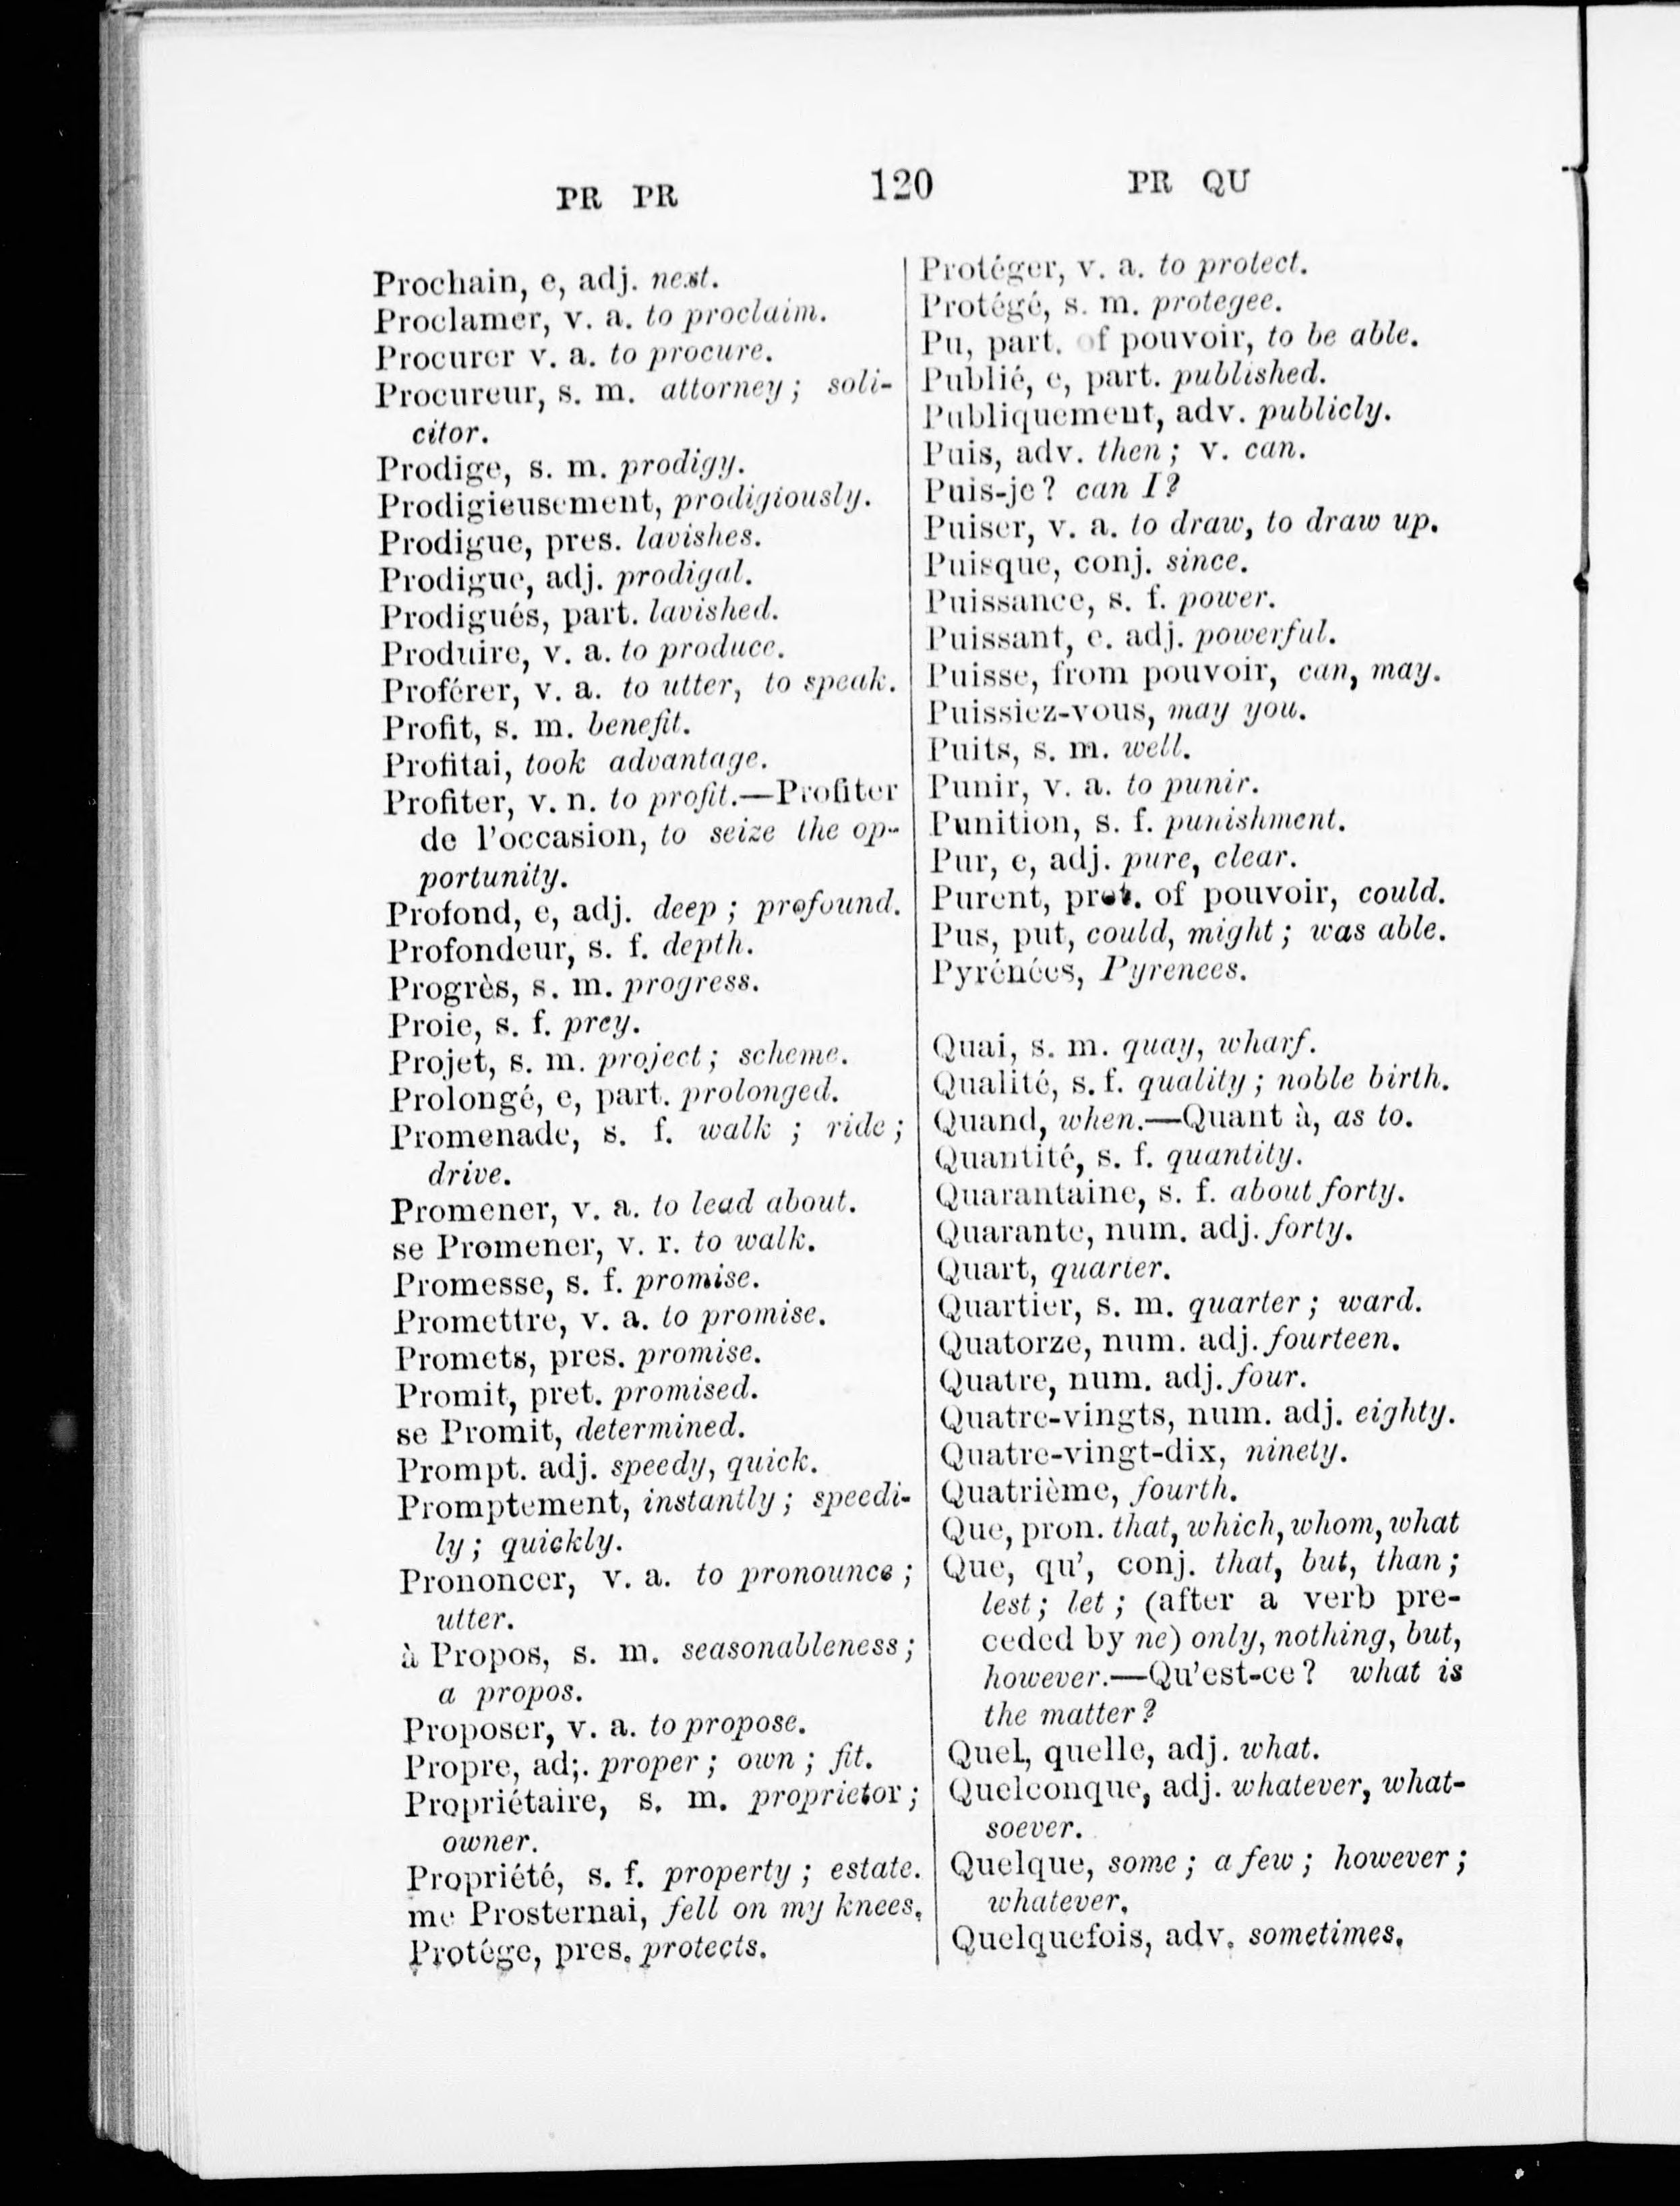 PR PR
120
PR QU
Prochain, e, adj. next.
Proclamer, v. a. to proclaim.
Procurer v. a. to procure.
Procureur, s. m. attorney; soli-
citor.
Prodige, s. m. prodigy.
Prodigieusement, prodigiously.
Prodigue, pres. lavishes.
Prodigue, adj. prodigal.
Prodigués, part. lavished.
Produire, v. a. to produce.
Proférer, v. a. to utter, to speak.
Profit, s. m. benefit.
Profitai, took advantage.
Profiter, v. n. to profit.—Profiter
de l'occasion, to seize the op-
portunity.
Profond, e, adj. deep; profound.
Profondeur, s. f. depth.
Progrès, s. m. progress.
Proie, s. f. prey.
Projet, s. m. project; scheme.
Prolongé, e, part. prolonged.
Promenade, s. f. walk; ride;
drive.
Promener, v. a. to lead about.
se Promener, v. r. to walk.
Promesse, s. f. promise.
Promettre, v. a. to promise.
Promets, pres. promise.
Promit, pret. promised.
se Promit, determined.
Prompt. adj. speedy, quick.
Promptement, instantly; speedi-
ly; quickly.
Prononcer, v. a. to pronounce;
utter.
à Propos, s. m. seasonableness;
a propos.
Proposer, v. a. to propose.
Propre, ad;. proper; own; fit.
Propriétaire, s. m. proprietor;
owner.
Propriété, s. f. property; estate.
me Prosternai, fell on my knees.
Protége, pres. protects.
Protéger, v. a. to protect.
Protégé, s. m. protegee.
Pu, part. of pouvoir, to be able.
Publié, e, part. published.
Publiquement, adv. publicly.
Puis, adv. then; v. can.
Puis-je? can I?
Puiser, v. a. to draw, to draw up.
Puisque, conj. since.
Puissance, s. f. power.
Puissant, e. adj. powerful.
Puisse, from pouvoir, can, may.
Puissiez-vous, may you.
Puits, s. m. well.
Punir, v. a. to punir.
Punition, s. f. punishment.
Pur, e, adj. pure, clear.
Purent, pret. of pouvoir, could.
Pus, put, could, might; was able.
Pyrénées, Pyrenees.
Quai, s. m. quay, wharf.
Qualité, s. f. quality; noble birth.
Quand, when.—Quant à, as to.
Quantité, s. f. quantity.
Quarantaine, s. f. about forty.
Quarante, num. adj. forty.
Quart, quarter.
Quartier, s. m. quarter; ward.
Quatorze, num. adj. fourteen.
Quatre, num. adj. four.
Quatre-vingts, num. adj. eighty.
Quatre-vingt-dix, ninety.
Quatrième, fourth.
Que, pron. that, which, whom, what
Que, qu', conj. that, but, than;
lest; let; (after a verb pre-
ceded by ne) only, nothing, but,
however.—Qu'est-ce? what is
the matter?
Quel, quelle, adj. what.
Quelconque, adj. whatever, what-
soever.
Quelque, some; a few; however;
whatever.
Quelquefois, adv. sometimes.